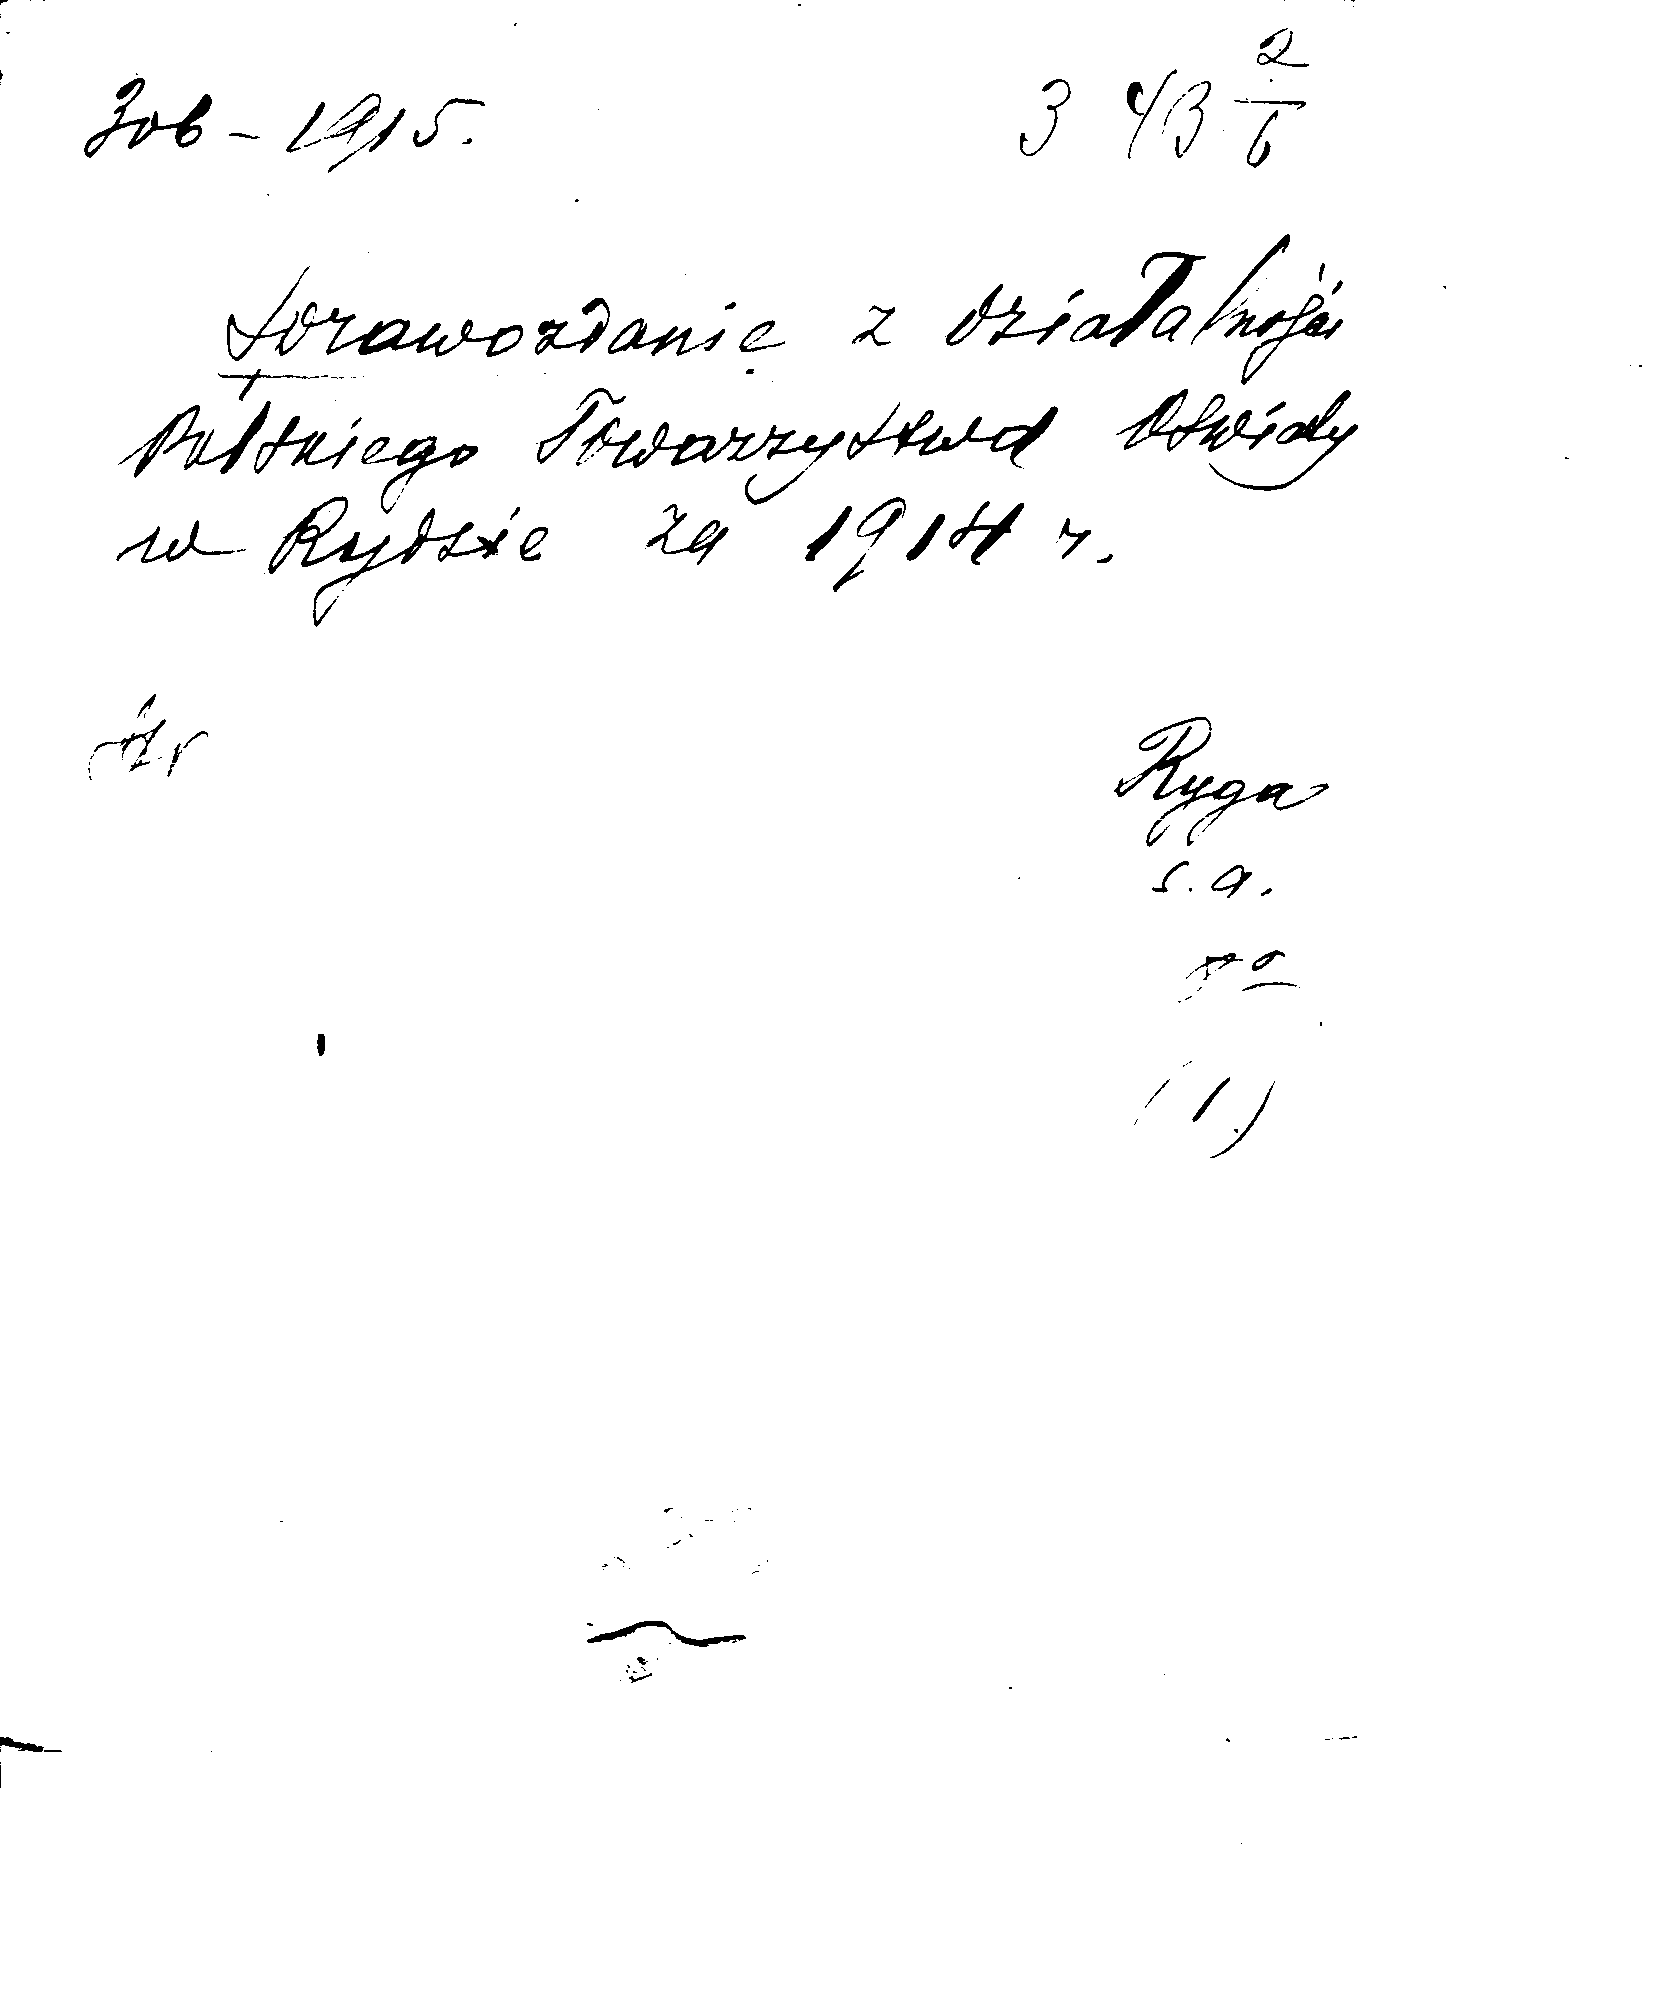 Зов - 1915.
3 43 2/6
Sprawozdanie z działalności
Polskiego Towarzystwa Oswiaty
w Rydzie za 1914 r.
Ryga
s.a.
8°
(1)